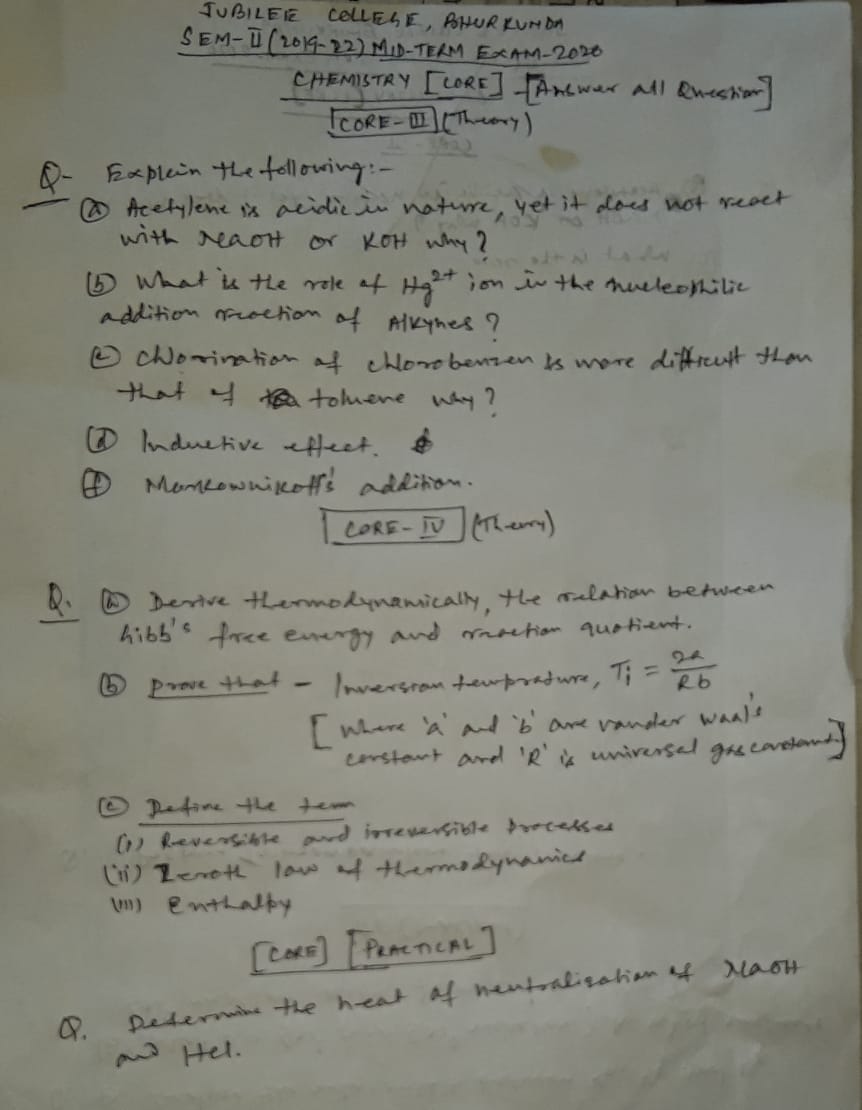 JUBILEE COLLEGE, BHURKUNDA
SEM-II (2019-22) MID-TERM EXAM-2020
CHEMISTRY [CORE] [Answer all Question]
[CORE-III] (Theory)
Q- Explain the following:-
(a) Acetylene is acidic in nature, yet it does not react
with NaOH or KOH why?
(b) What is the role of Hg2+ ion in the nucleophilic
addition reaction of Alkynes?
(c) Chlorination of chlorobenzen is more difficult than
that of toluene why?
(d) Inductive effect.
(f) Markownikoff's addition.
[CORE-IV] (Theory)
Q. (a) Derive thermodynamically, the relation between
Gibb's free energy and reaction quotient.
(b) Prove that - Inversion temprature, Ti = 2a/Rb
[Where 'a' and 'b' are vander waal's
constant and 'R' is universal gas constant]
(c) Define the term
(i) Reversible and irreversible processes
(ii) Zeroth law of thermodynamics
(iii) Enthalpy
[CORE] [PRACTICAL]
Q. Determine the heat of neutralisation of NaOH
and Hcl.